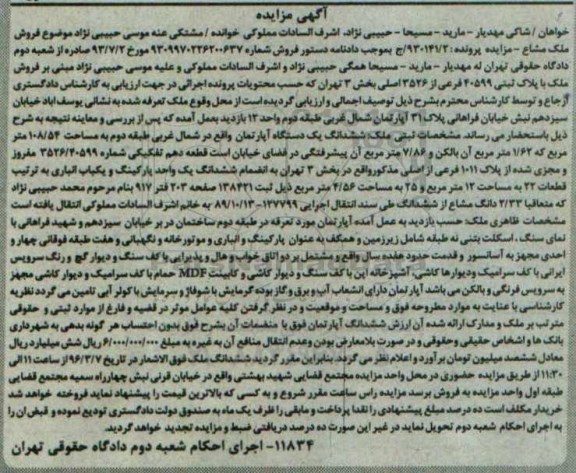 آگهی مزایده
خواهان / شاکی مهدیار - مارید - مسیحا - حبیبی نژاد، اشرف السادات مملوکی خوانده / مشتکی عنه موسی حبیبی نژاد موضوع فروش
ملک مشاع - مزایده پرونده: ۹۳۰۱۴۱/۲/ج بموجب دادنامه دستور فروش شماره ۹۳۰۹۹۷۰۲۲۶۲۰۰۶۳۷ مورخ ۹۳/۷/۲ صادره از شعبه دوم
دادگاه حقوقی تهران له مهدیار - مارید - مسیحا همگی حبیبی نژاد و اشرف السادات مملوکی و علیه موسی حبیبی نژاد مبنی بر فروش
ملک با پلاک ثبتی ۴۰۵۹۹ فرعی از ۳۵۲۶ اصلی بخش ۳ تهران که حسب محتویات پرونده اجرائی در جهت ارزیابی به کارشناس دادگستری
ارجاع و توسط کارشناس محترم بشرح ذیل توصیف اجمالی و ارزیابی گردیده است از محل وقوع ملک تعرفه شده به نشانی یوسف اباد خیابان
سیزدهم نبش خیابان فراهانی پلاک ۳۱ آپارتمان شمال غربی طبقه دوم واحد ۱۲ بازدید بعمل آمده که پس از بررسی و معاینه نتیجه به شرح
ذیل باستحضار می رساند. مشخصات ثبتی ملک: ششدانگ یک دستگاه آپارتمان واقع در شمال غربی طبقه دوم به مساحت ۱۰۸/۵۴ متر
مربع که ۱/۶۲ متر مربع آن بالکن و ۷/۸۶ متر مربع آن پیشرفتگی در فضای خیابان است قطعه دهم تفکیکی شماره ۳۵۲۶/۴۰۵۹۹ مفروز
و مجزی شده از پلاک ۱۰۱۱ فرعی از اصلی مذکور واقع در بخش ۳ تهران به انضمام ششدانگ یک واحد پارکینگ و یکباب انباری به ترتیب
قطعات ۲۲ به مساحت ۱۲ متر مربع و ۲۵ به مساحت ۴/۵۶ متر مربع ذیل ثبت ۱۳۸۴۲۱ صفحه ۲۰۳ فتر ۹۱۷ بنام مرحوم محمد حبیبی نژاد
که متعاقبا ۲/۳۳ دانگ مشاع از ششدانگ طی سند انتقال اجرایی ۱۲۷۷۹۹-۸۹/۱۰/۱۳ به خانم اشرف السادات مملوکی انتقال یافته است
مشخصات ظاهری ملک: حسب بازدید به عمل آمده آپارتمان مورد تعرفه در طبقه دوم ساختمان در بر خیابان سیزدهم و شهید فراهانی با
نمای سنگ، اسکلت بتنی نه طبقه شامل زیرزمین و همکف به عنوان پارکینگ و انباری و موتورخانه و نگهبانی و هفت طبقه فوقانی چهار و
احدی مجهز به آسانسور و قدمت حدود هفده سال واقع و مشتمل بر دو اتاق خواب و هال و پذیرایی با کف سنگ و دیوار گچ و رنگ سرویس
ایرانی با کف سرامیک و دیوارها کاشی، آشپزخانه این با کف سنگ و دیوار کاشی و کابینت MDF حمام با کف سرامیک و دیوار کاشی مجهز
به سرویس فرنگی و بالکن می باشد آپارتمان دارای انشعاب آب و برق و گاز بوده گرمایش با شوفاژ و سرمایش با کولر آبی تامین می گردد نظریه
کارشناسی با عنایت به موارد مطروحه فوق و مساحت و موقعیت و در نظر گرفتن کلیه عوامل موثر در قضیه و فارغ از موارد ثبتی و حقوقی
مترتب بر ملک و مدارک ارائه شده آن ارزش ششدانگ آپارتمان فوق با منضمات آن بشرح فوق بدون احتساب هر گونه بدهی به شهرداری
بانک ها و اشخاص حقیقی و حقوقی و در صورت بلامعارض بودن و عدم انتقال منافع آن به غیره به مبلغ ۶/۰۰۰/۰۰۰/۰۰۰ ریال شش میلیارد ریال
معادل ششصد میلیون تومان برآورد و اعلام نظر می گردد. بنابراین مقرر گردید ششدانگ ملک فوق الاشعار در تاریخ ۹۶/۳/۷ از ساعت ۱۱ الی
۱۱:۳۰ از طریق مزایده حضوری در محل واحد مزایده مجتمع قضایی شهید بهشتی واقع در خیابان قرنی نبش چهارراه سمیه مجتمع قضایی
طبقه اول واحد مزایده به فروش برسد مزایده راس ساعت مقرر شروع و به کسی که بالاترین قیمت را پیشنهاد نماید فروخته خواهد شد
خریدار مکلف است ده درصد مبلغ پیشنهادی را نقدا پرداخت و مابقی را ظرف یک ماه به صندوق دولت دادگستری تودیع نموده و قبض ان را
به اجرای احکام شعبه دوم تحویل نماید در غیر این صورت ده درصد دریافتی ضبط و مزایده تجدید خواهد گردید.
۱۱۸۳۴- اجرای احکام شعبه دوم دادگاه حقوقی تهران